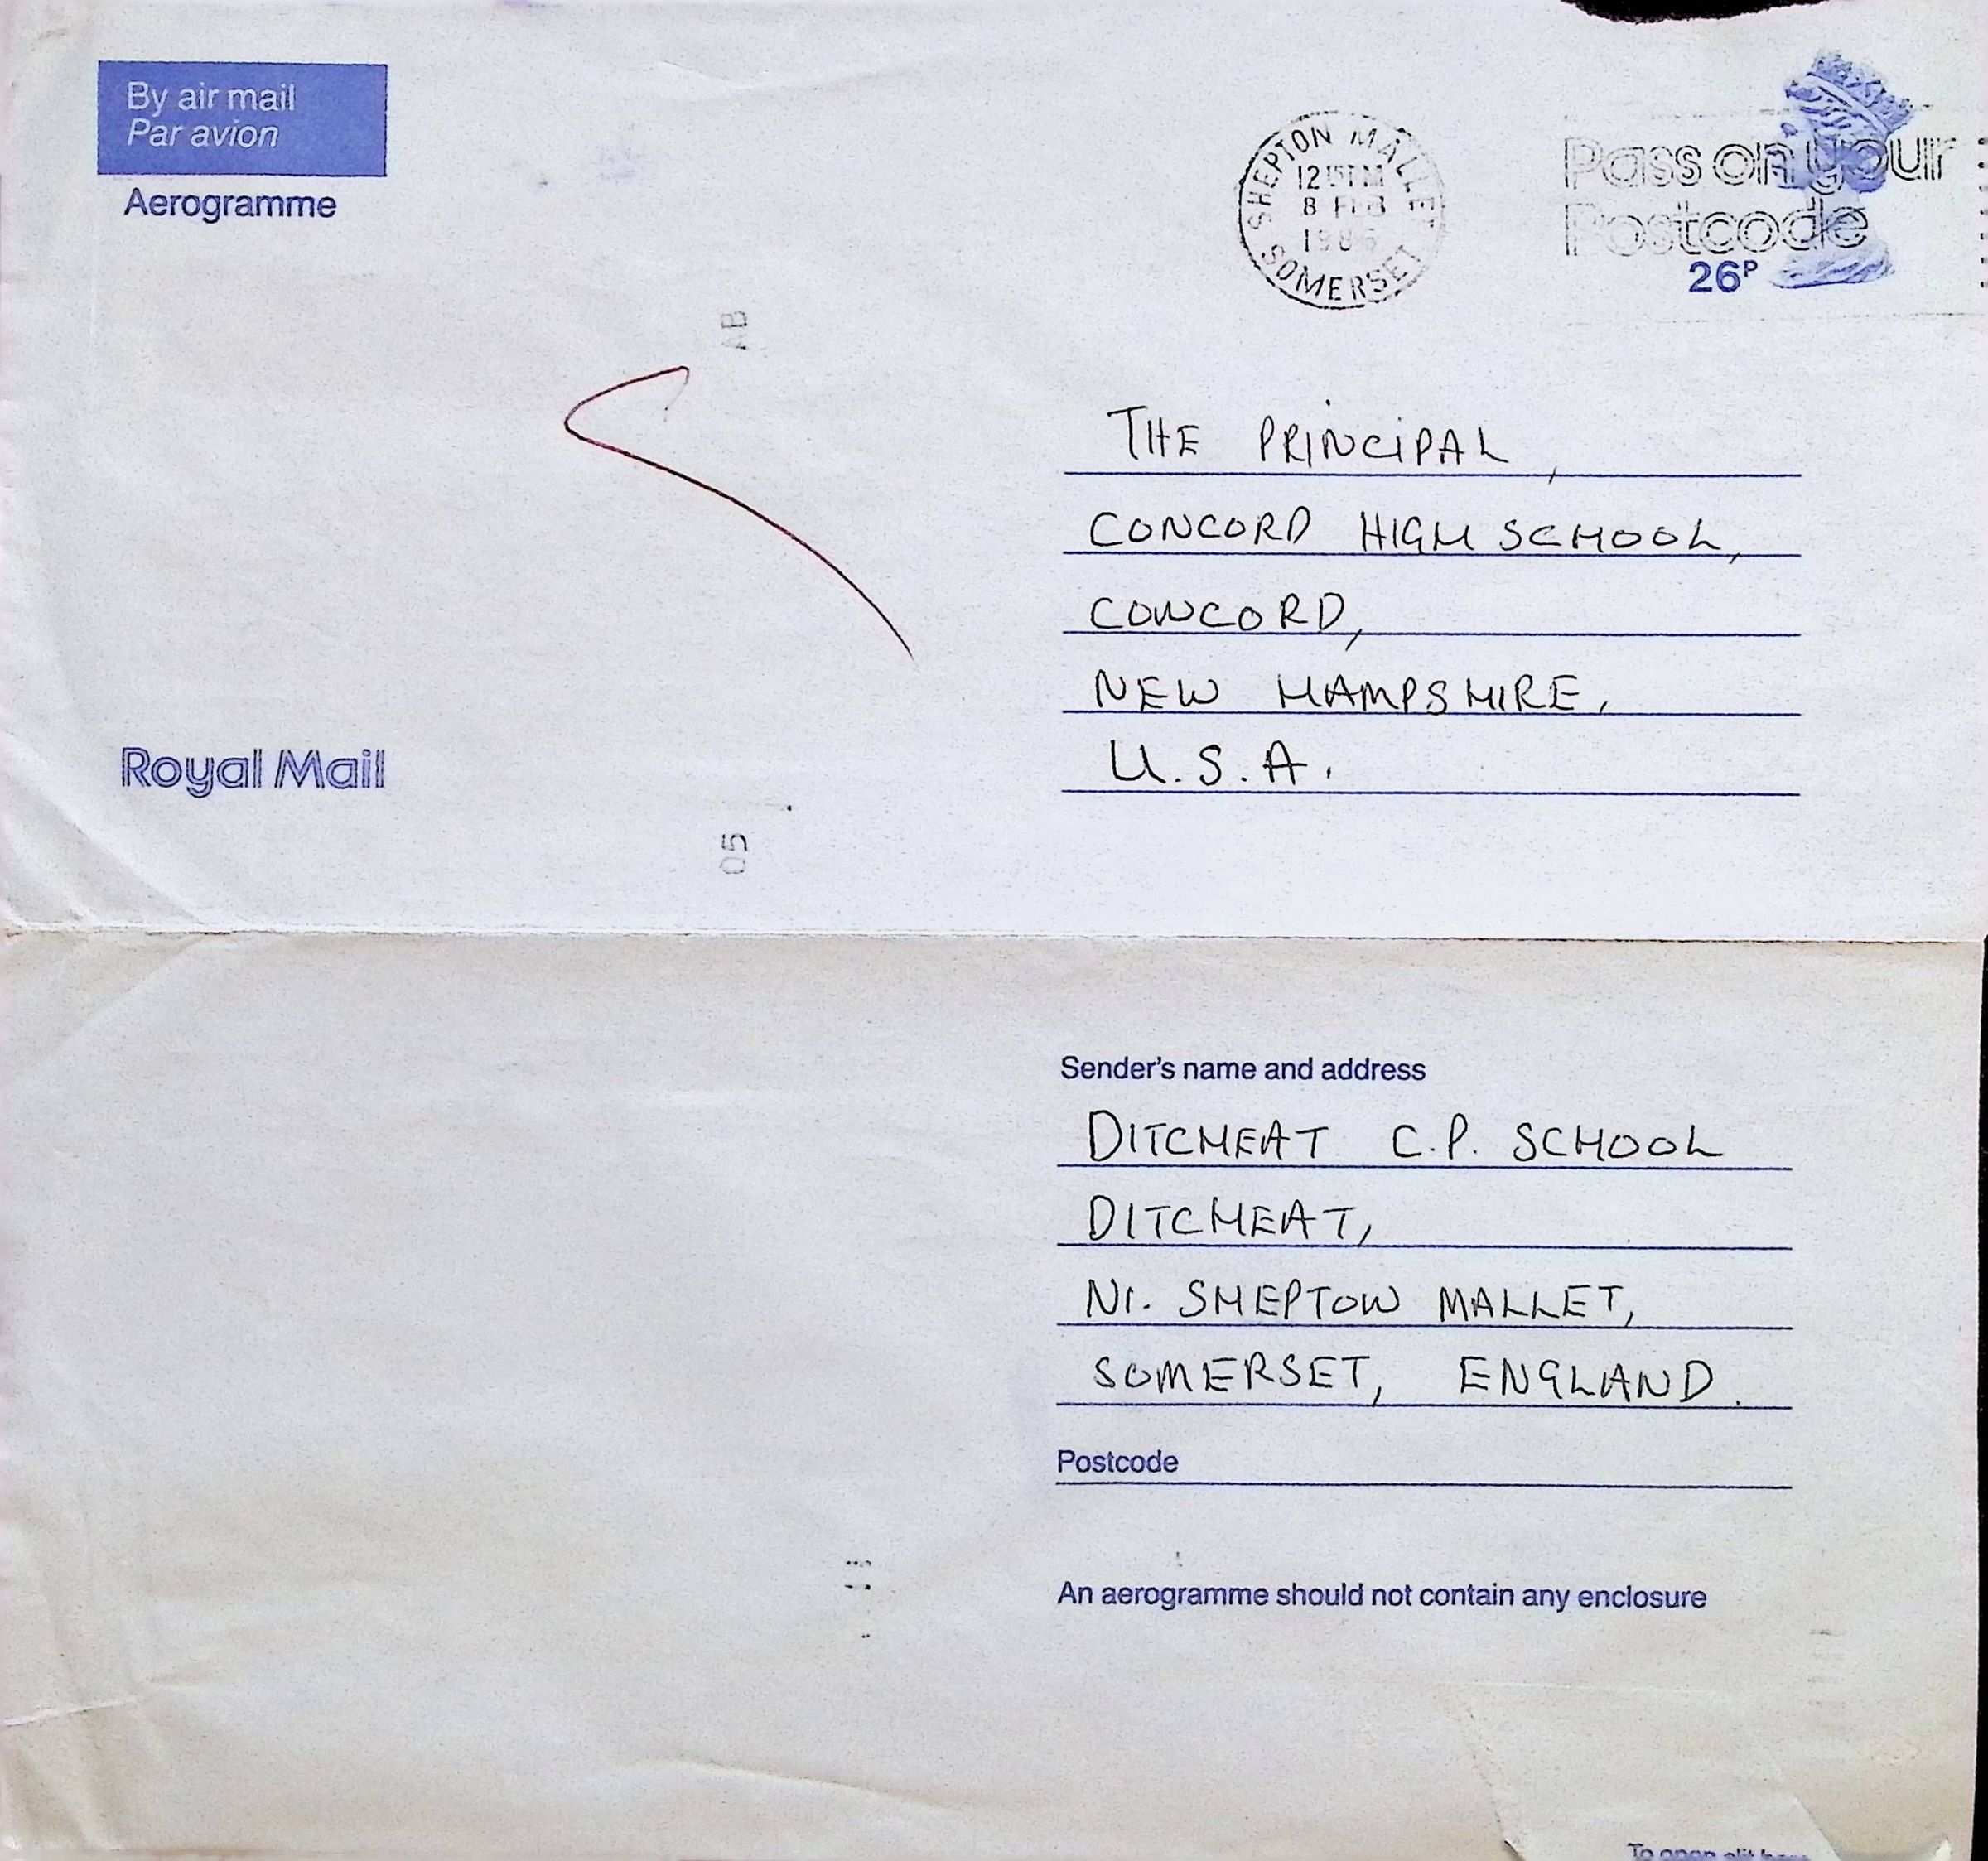 By air mail
Par avion
Aerogramme
SHEPTON MALLET
8 FEB
1986
SOMERSET
Pass on your
Postcode
26P
AB
THE PRINCIPAL,
CONCORD HIGH SCHOOL,
CONCORD,
NEW HAMPSHIRE,
U.S.A.
Royal Mail
05
Sender's name and address
DITCHEAT C.P. SCHOOL
DITCHEAT,
Nr. SHEPTON MALLET,
SOMERSET, ENGLAND.
Postcode
An aerogramme should not contain any enclosure
To open slit here